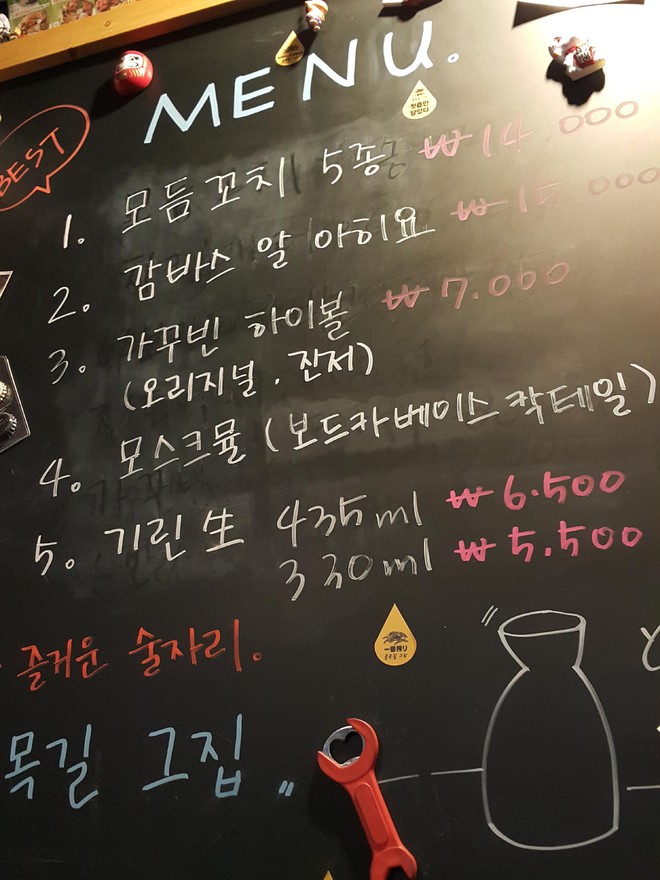 MENU.
BEST
1. 모듬꼬치 5종 ₩14 000
2. 감바스 알 아히요 ₩15 000
3. 가꾸빈 하이볼 ₩7.000
(오리지널 . 진저)
4. 모스크뮬 (보드카베이스 칵테일)
5. 기린 生 435ml ₩6.500
330ml ₩5.500
즐거운 술자리.
목길 그집 "